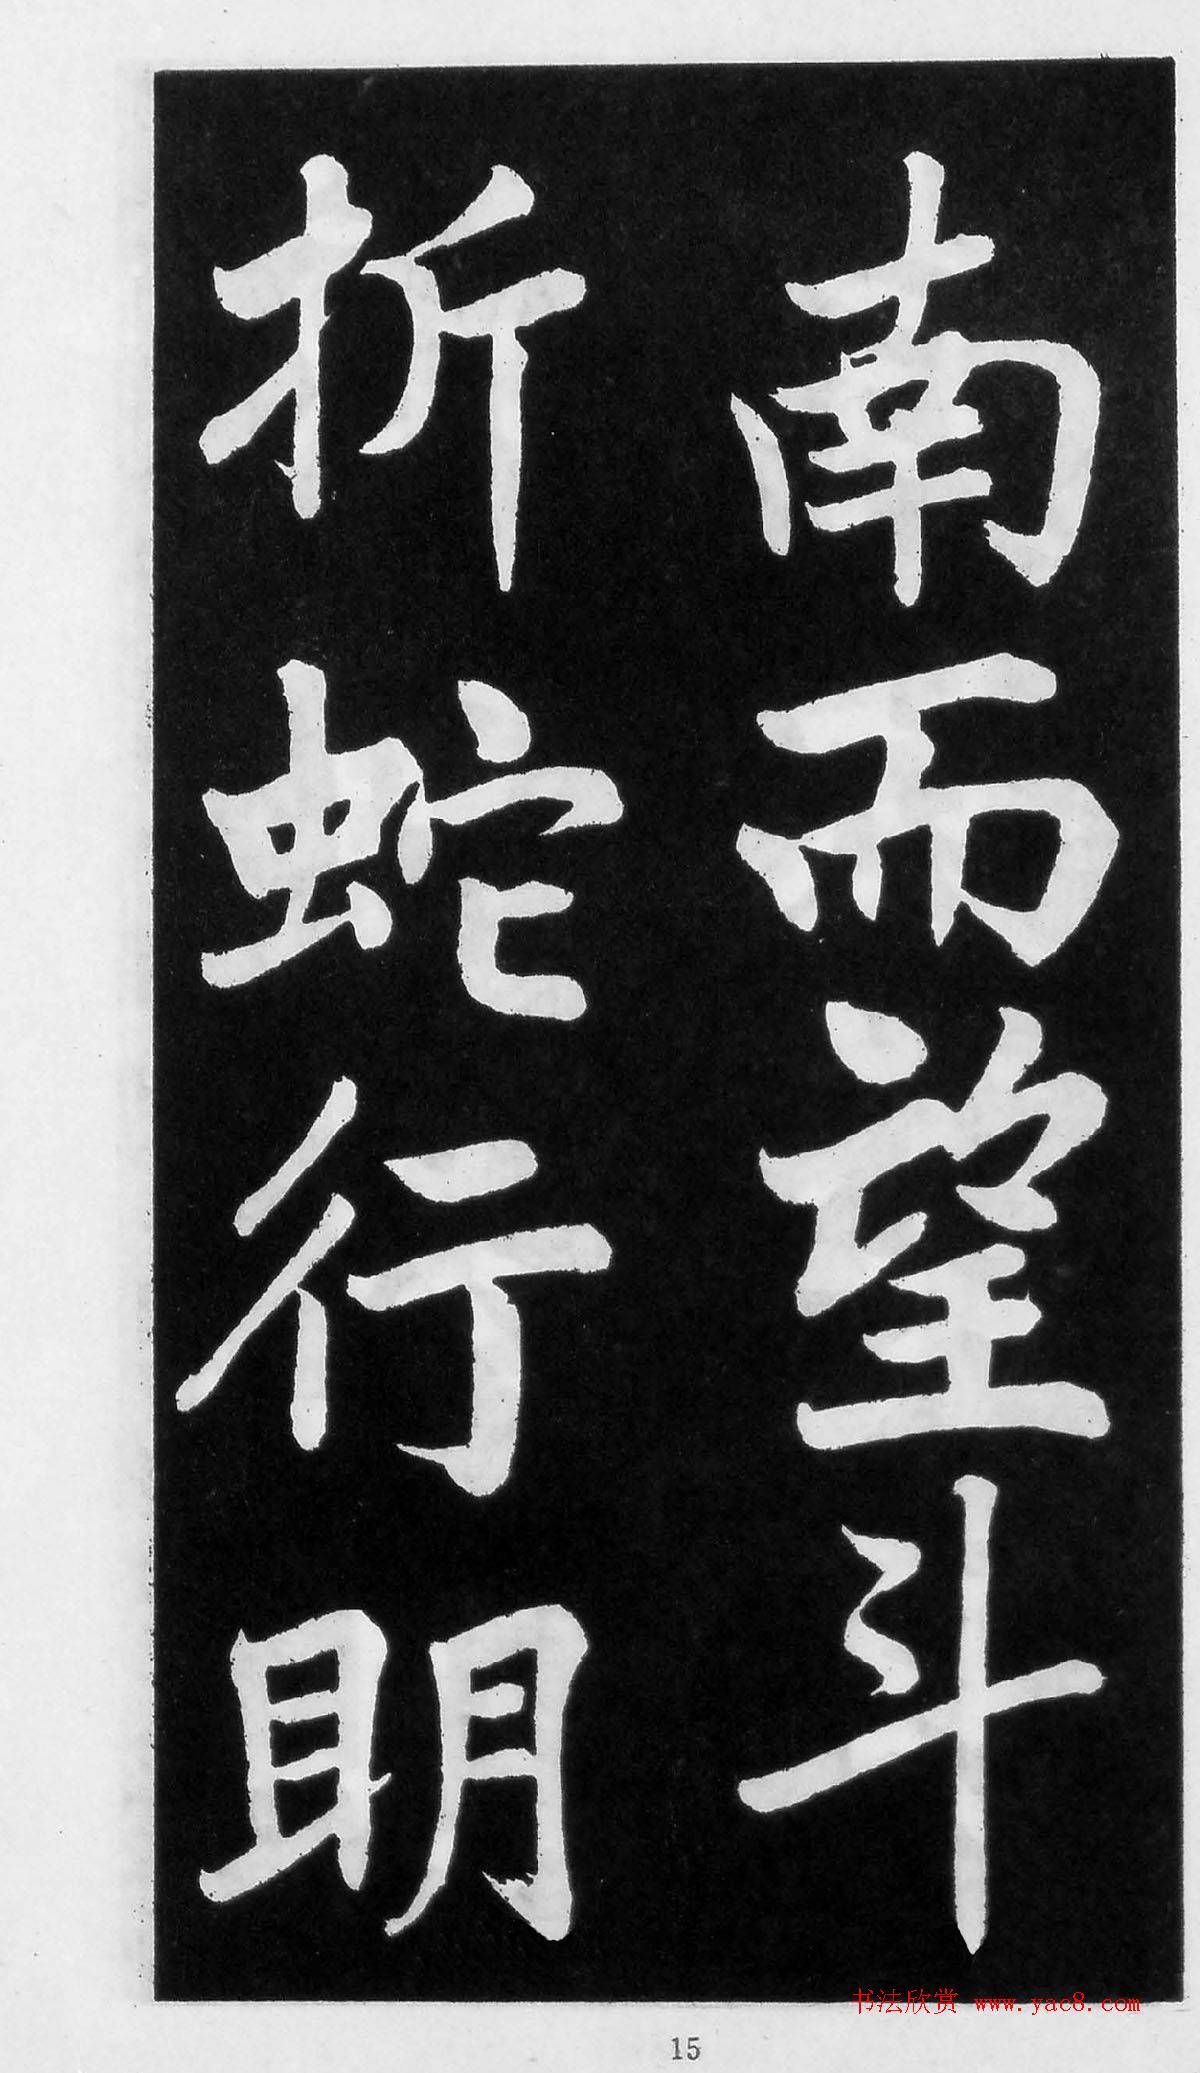 南而望斗
折蛇行明
书法欣赏 www.yac8.com
15